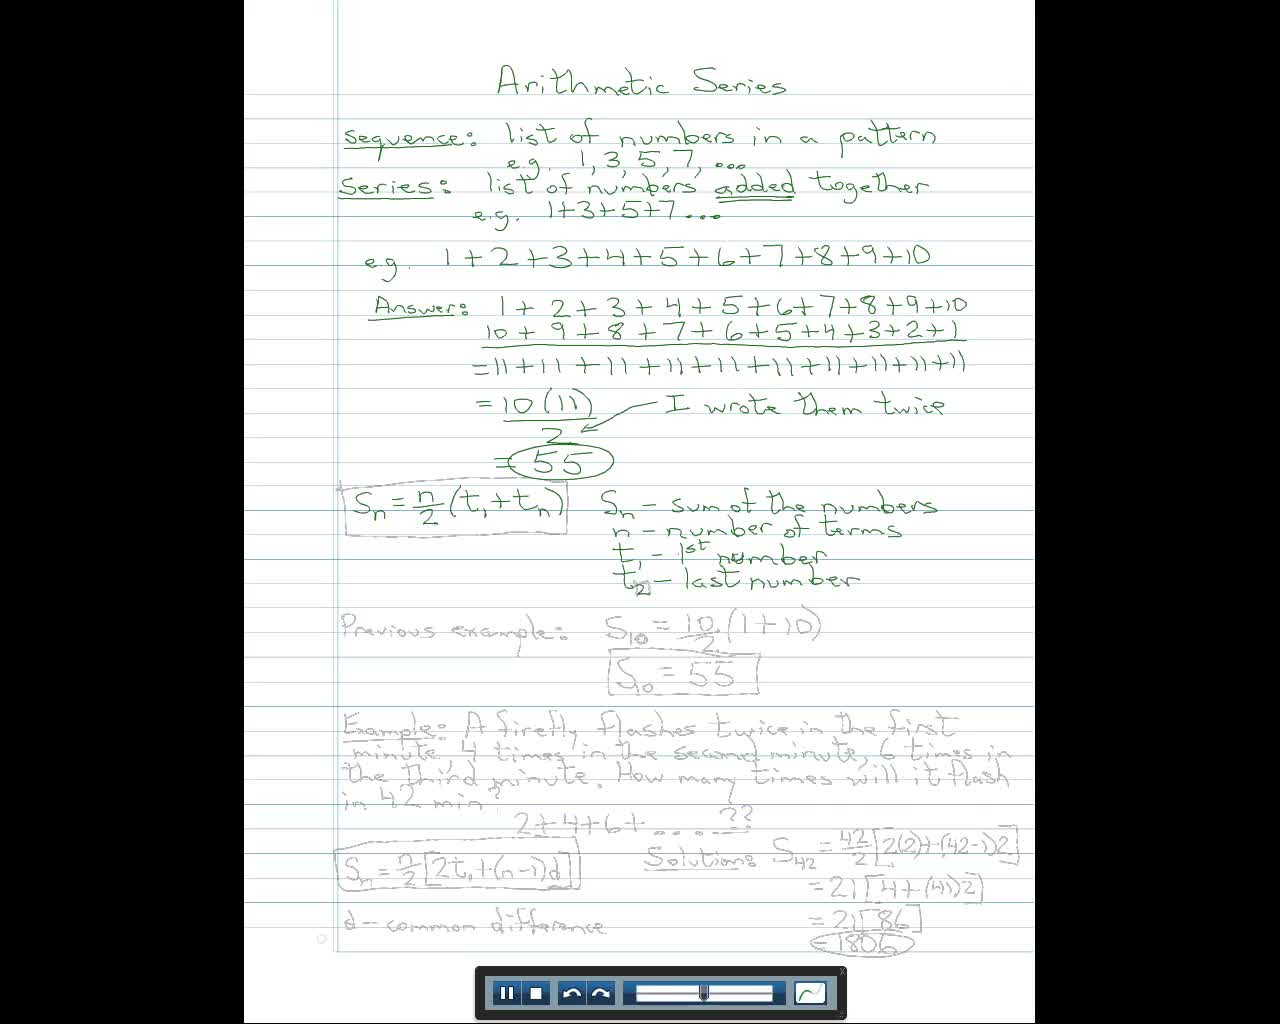 Arithmetic Series
Sequence: list of numbers in a pattern
e.g. 1, 3, 5, 7, ...
Series: list of numbers added together
e.g. 1+3+5+7...
e.g. 1+2+3+4+5+6+7+8+9+10
Answer: 1+2+3+4+5+6+7+8+9+10
10+9+8+7+6+5+4+3+2+1
=11+11+11+11+11+11+11+11+11+11
= 10(11)/2 I wrote them twice
= 55
Sn = n/2 (t1+tn) Sn – sum of the numbers
n – number of terms
t1 – 1st number
t2 – last number
Previous example: S10 = 10/2 (1+10)
S10 = 55
Example: A firefly flashes twice in the first
minute, 4 times in the second minute, 6 times in
the third minute. How many times will it flash
in 42 min?
2+4+6+ ........??
Sn = n/2 [2t1+(n-1)d] Solution: S42 = 42/2 [2(2)+(42-1)2]
= 21[4+(41)2]
d – common difference = 21[86]
= 1806